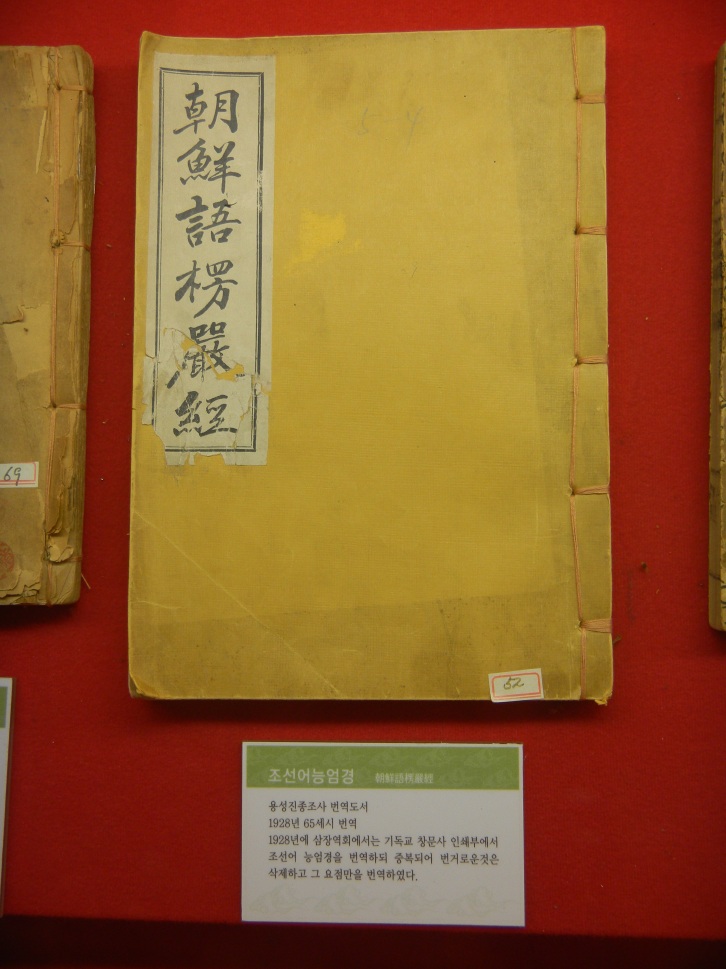 朝鮮語楞嚴經
54
69
52
조선어능엄경 朝鮮語楞嚴經
용성진종조사 번역도서
1928년 65세시 번역
1928년에 삼장역회에서는 기독교 창문사 인쇄부에서
조선어 능엄경을 번역하되 중복되어 번거로운것은
삭제하고 그 요점만을 번역하였다.